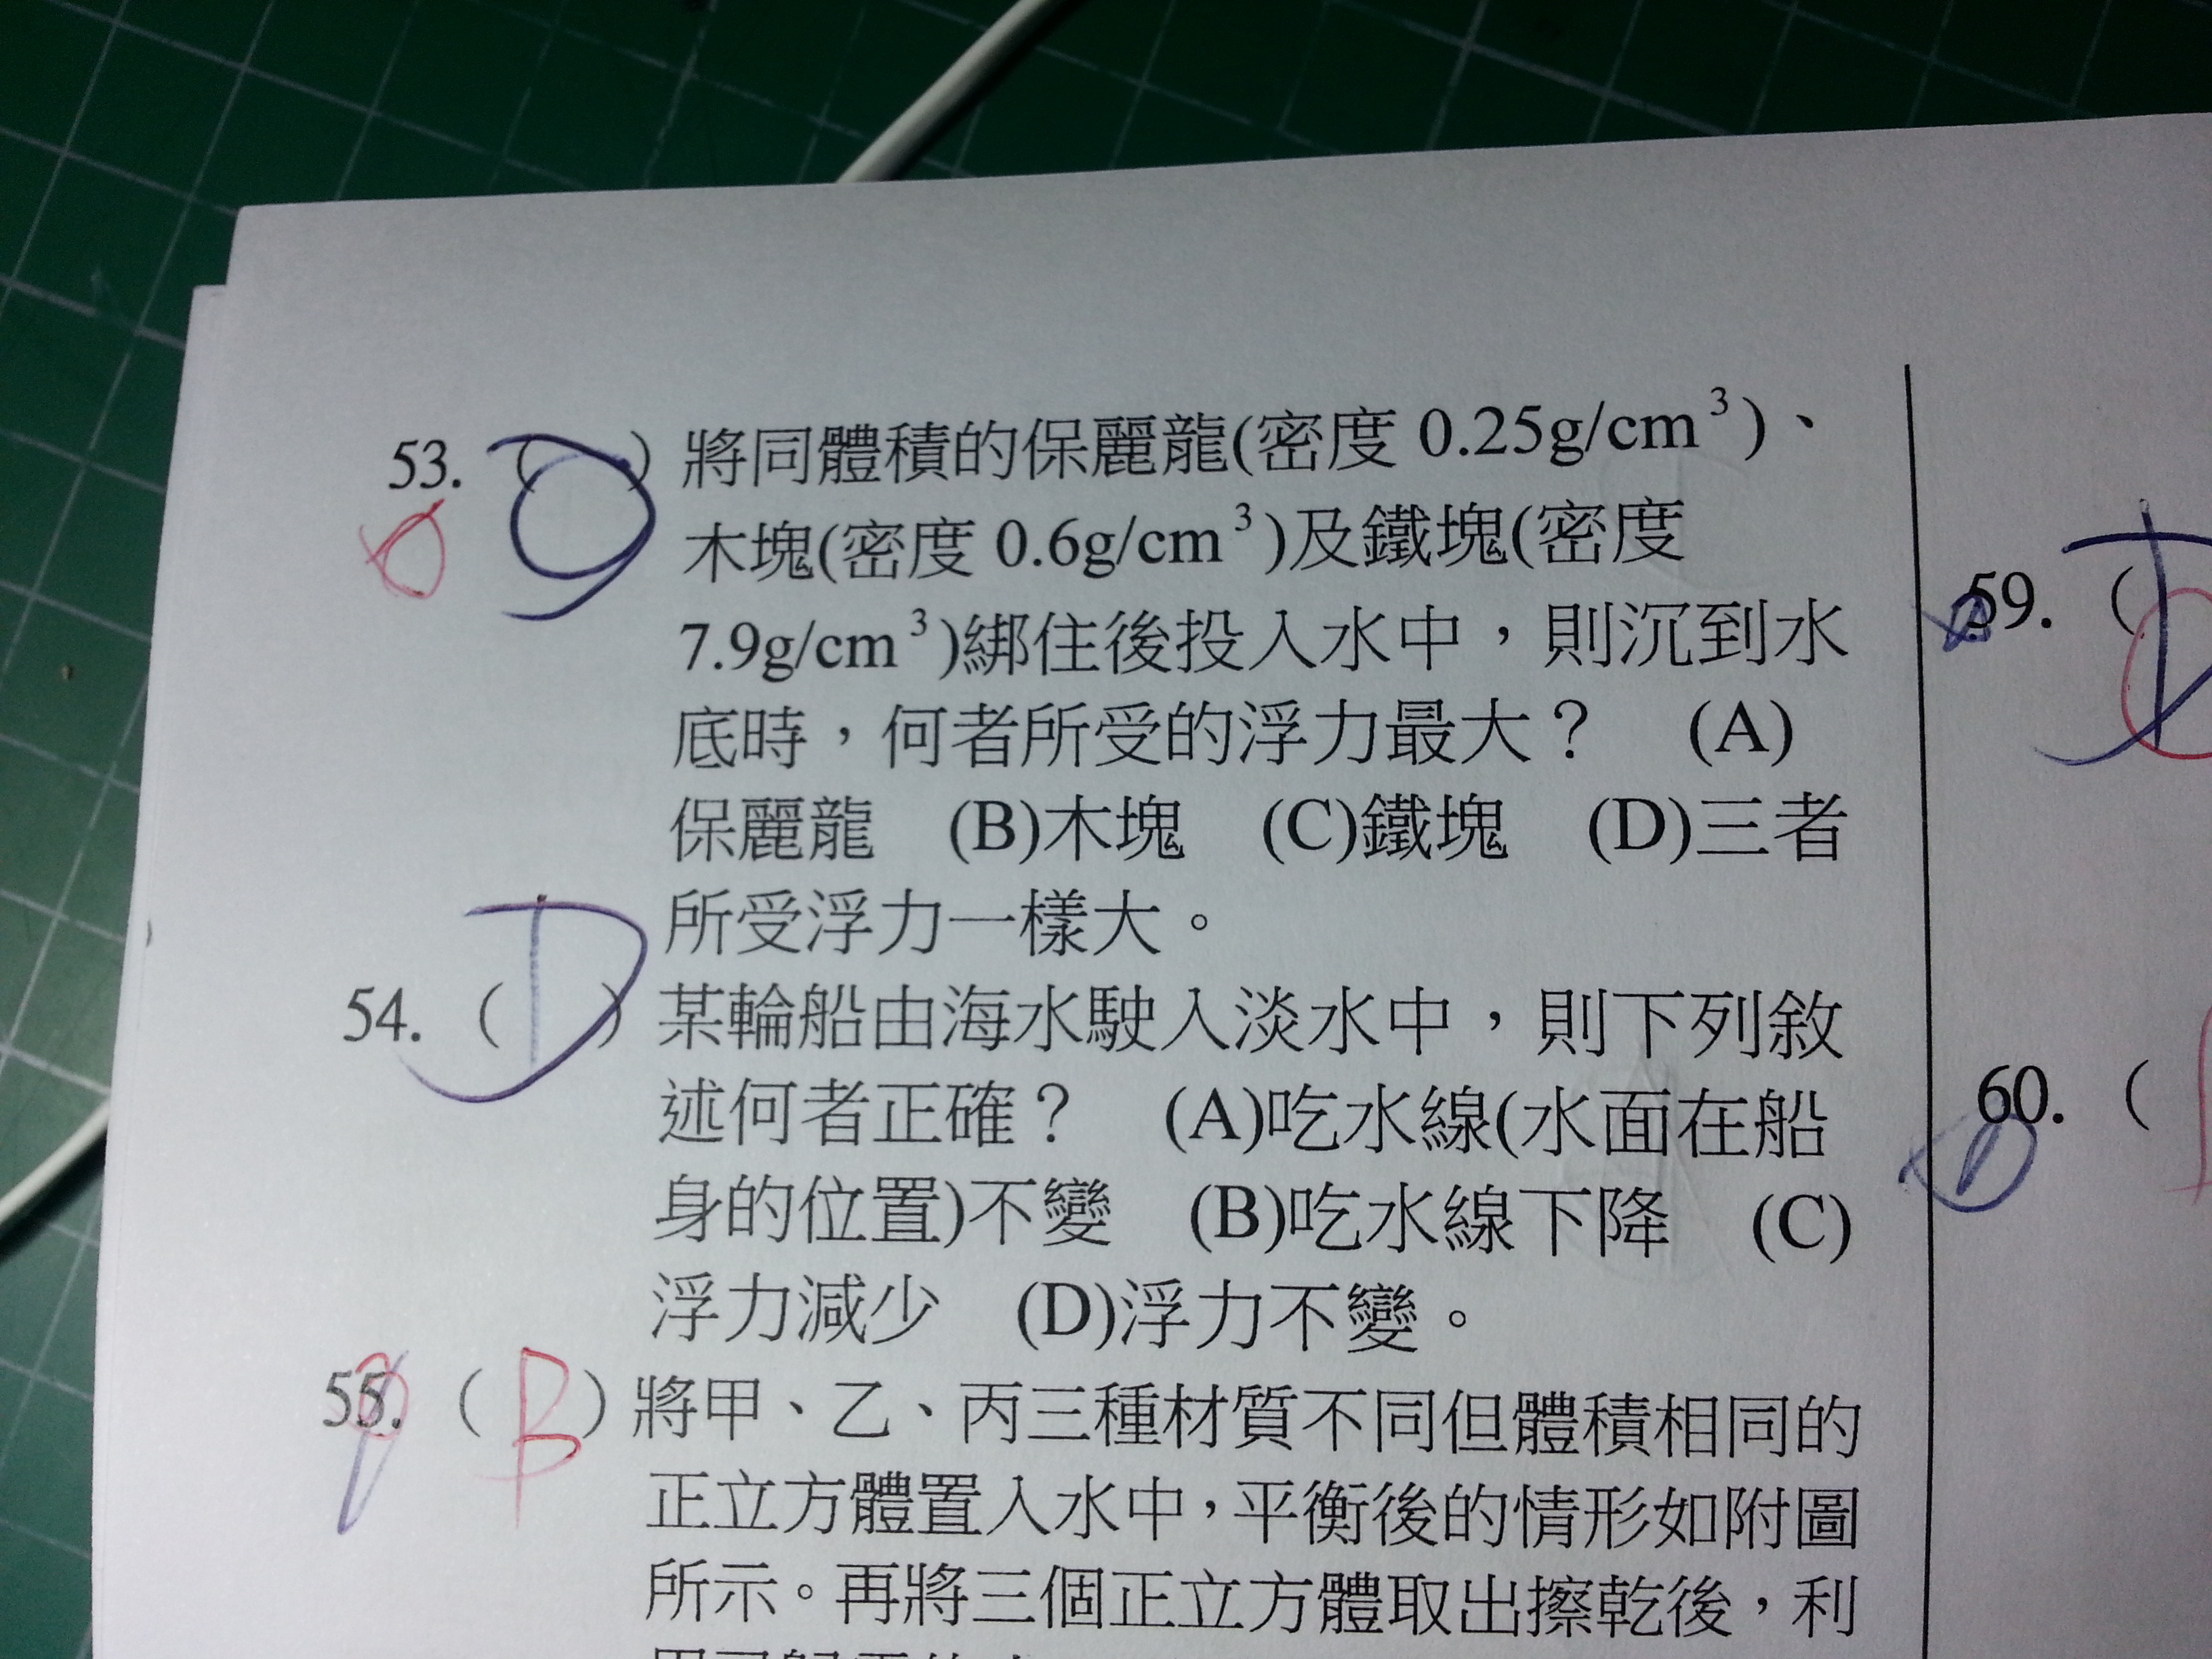 53. ( ) 將同體積的保麗龍(密度 0.25g/cm³)、
木塊(密度 0.6g/cm³)及鐵塊(密度
7.9g/cm³)綁住後投入水中，則沉到水
底時，何者所受的浮力最大？ (A)
保麗龍 (B)木塊 (C)鐵塊 (D)三者
所受浮力一樣大。
54. (D) 某輪船由海水駛入淡水中，則下列敘
述何者正確？ (A)吃水線(水面在船
身的位置)不變 (B)吃水線下降 (C)
浮力減少 (D)浮力不變。
55. (B) 將甲、乙、丙三種材質不同但體積相同的
正立方體置入水中，平衡後的情形如附圖
所示。再將三個正立方體取出擦乾後，利
59. (D
60. (